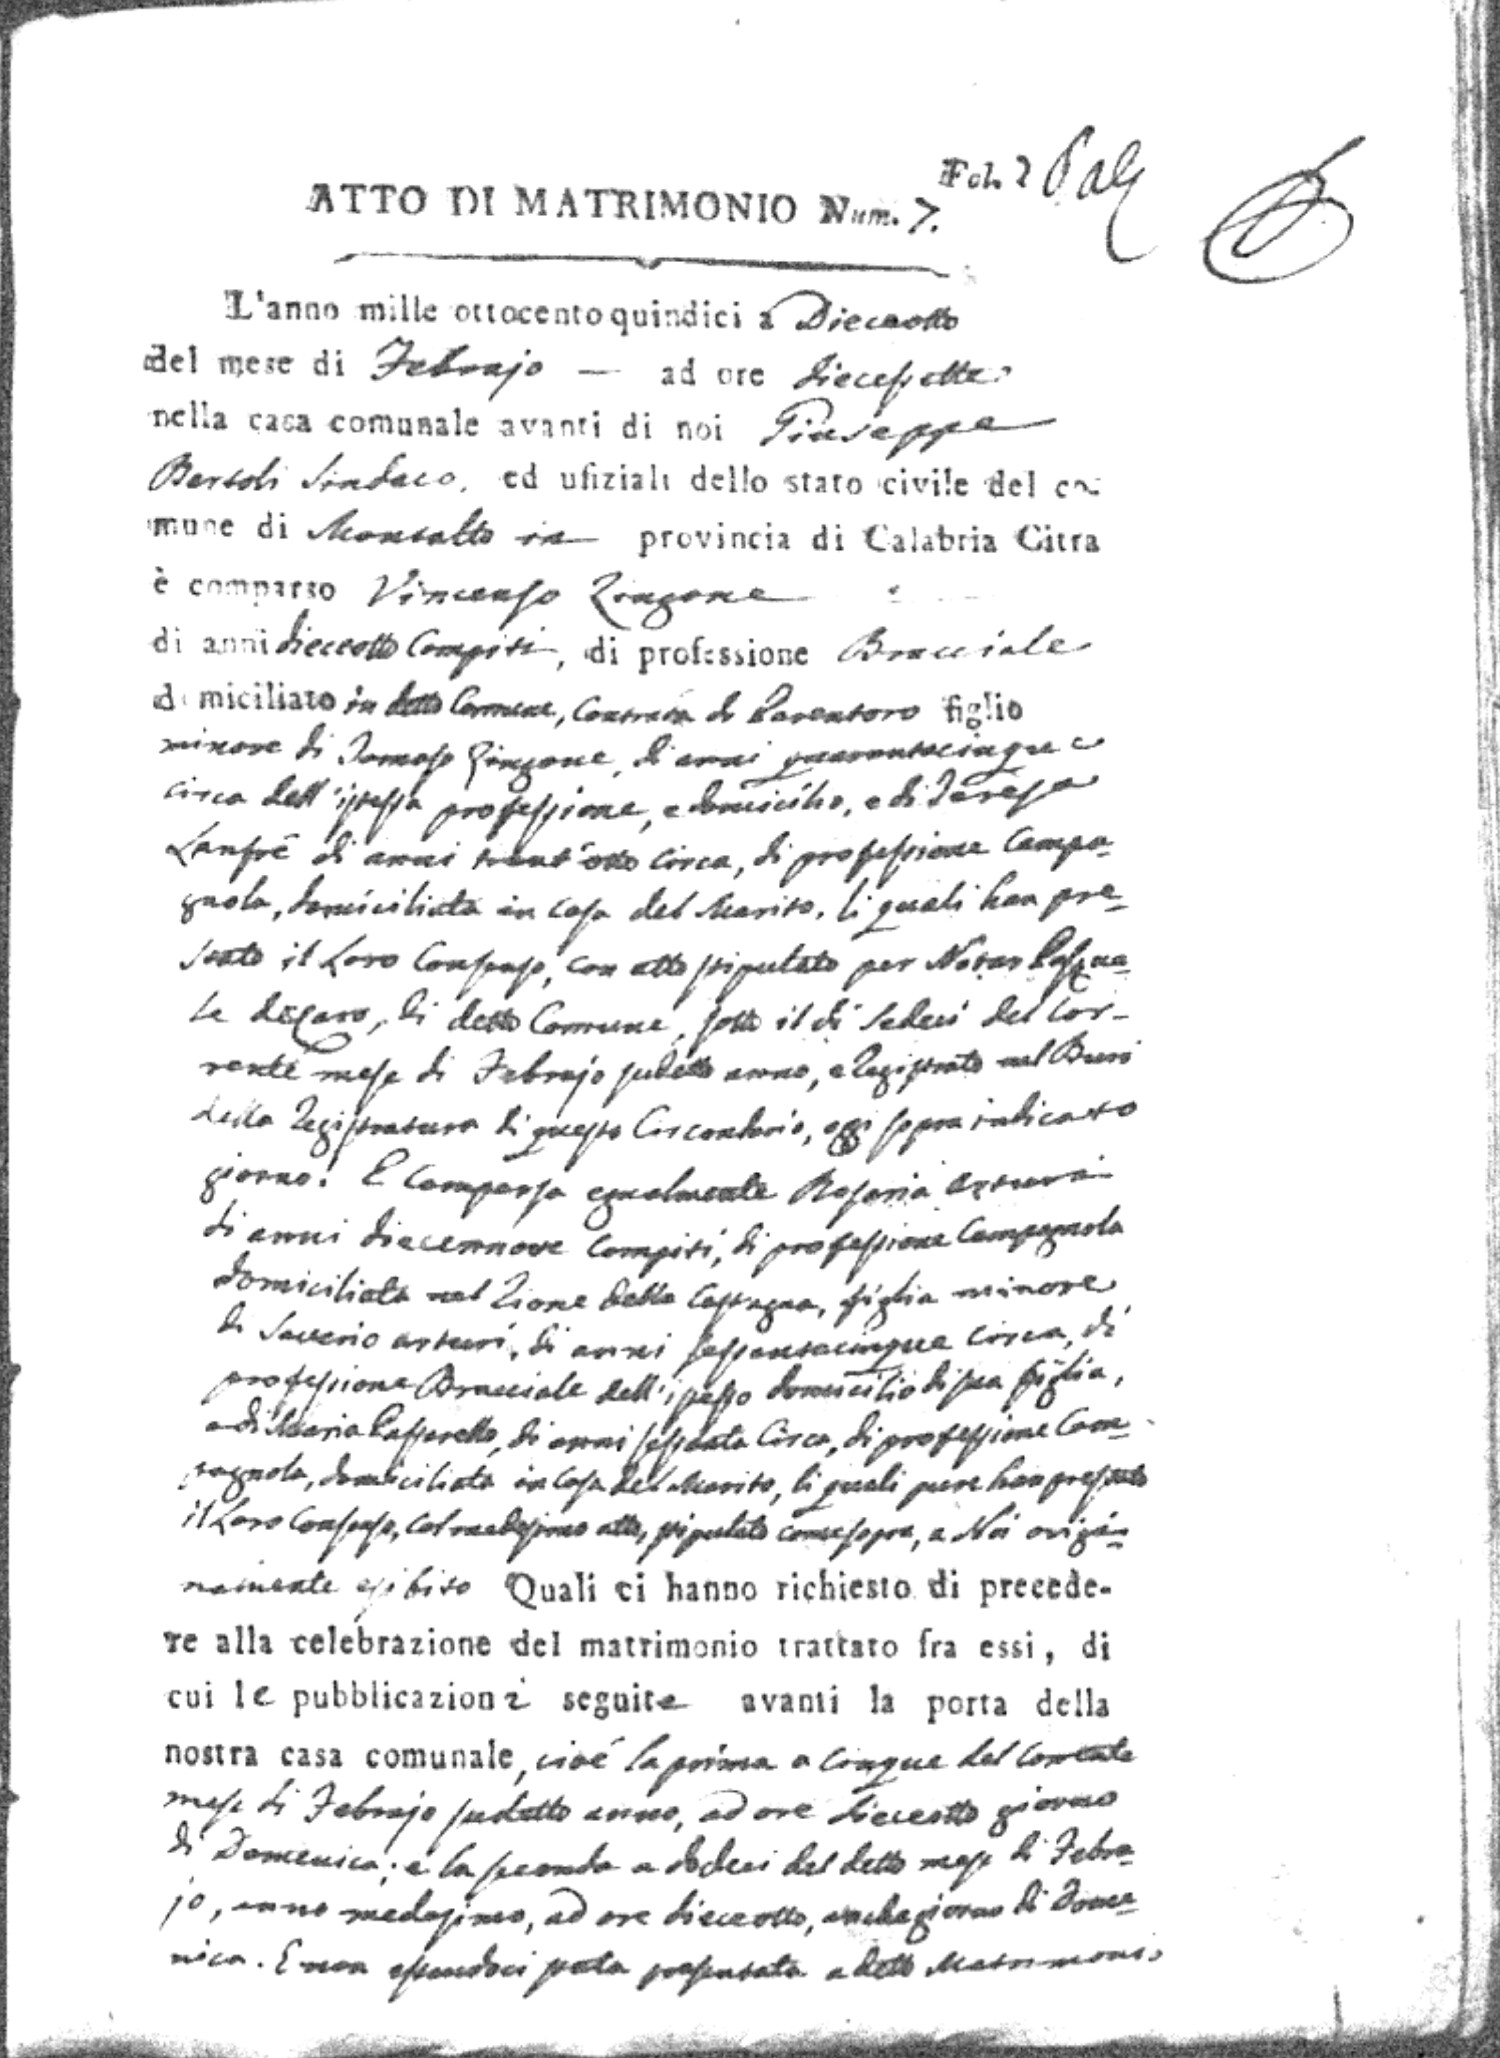 Fol. 2
ATTO DI MATRIMONIO Num. 7.
L'anno mille ottocento quindici a Dieceotto
del mese di Febrajo — ad ore diecesette
nella casa comunale avanti di noi Giuseppe
Bertoli Sindaco, ed ufiziali dello stato civile del co-
mune di Montalto in provincia di Calabria Citra
è comparso Vincenso Zingone
di anni dieceotto Compiti, di professione Bracciale
domiciliato in detto Comune, Contrata di Parentoro figlio
minore di Tomaso Zingone, di anni quarantacinque
circa dell'istessa professione, e domicilio, e di Teresa
Lanfrè di anni trent'otto circa, di professione Campa-
gnola, domiciliata in casa del Marito, li quali han pre-
stato il Loro Consenso, con atto stipulato per Notar Pasqua-
le deCaro, di detto Comune, sotto il di Sedeci del Cor-
rente mese di Febrajo sudetto anno, e Registrato nel Burò
della Registratura di questo Circondario, oggi sopra indicato
giorno. E Comparsa egualmente Rosaria Arturi
di anni diecennove Compiti, di professione Campagnola
domiciliata nel Rione della Castagna, figlia minore
di Saverio Arturi, di anni sessantacinque circa, di
professione Bracciale dell'istesso domicilio di sua figlia,
e di Maria Passarello, di anni sessanta Circa, di professione Cam-
pagnola, domiciliata in Casa del Marito, li quali pure han prestato
il Loro Consenso, col medesimo atto, stipulato come sopra, a Noi origi-
nalmente esibito Quali ci hanno richiesto di precede-
re alla celebrazione del matrimonio trattato fra essi, di
cui le pubblicazioni seguite avanti la porta della
nostra casa comunale, cioé la prima a Cinque del Corrente
mese di Febrajo sudetto anno, ad ore dieceotto giorno
di Domenica; e la seconda a dodeci del detto mese di Febra-
jo, anno medesimo, ad ore dieceotto, anche giorno di Dome-
nica. E non essendoci stata presentata a detto Matrimoni